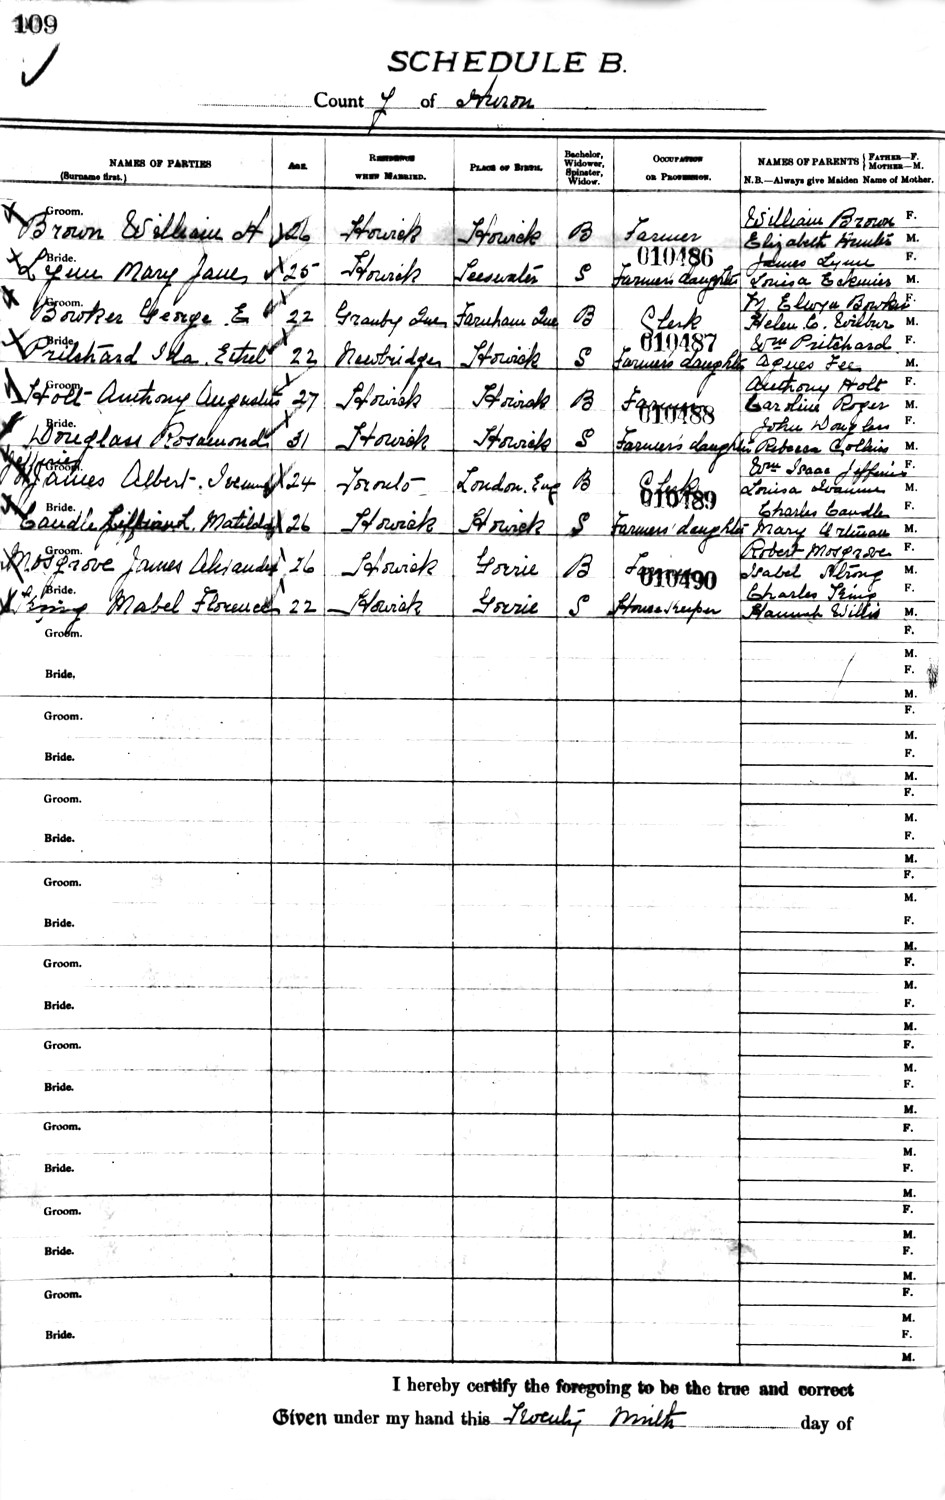 109
SCHEDULE B.
County of Huron
NAMES OF PARTIES (Surname first.) AGE. RESIDENCE WHEN MARRIED. PLACE OF BIRTH. Bachelor, Widower, Spinster, Widow. OCCUPATION OR PROFESSION. NAMES OF PARENTS { FATHER—F. MOTHER—M. N.B.—Always give Maiden Name of Mother.
Groom. William Brown F.
Brown William H 26 Howick Howick B Farmer Elizabeth Hunter M.
010486
Bride. James Lynn F.
Lynn Mary Jane 25 Howick Teeswater S Farmers daughter Louisa Eckmier M.
Groom. Elwyn Bowker F.
Bowker George E 22 Granby Que Farnham Que B Clerk Helen C. Wilbur M.
010487
Bride. Wm Pritchard F.
Pritchard Ila Ethel 22 Newbridge Howick S Farmers daughter Agnes Fee M.
Groom. Anthony Holt F.
Holt Anthony Augustus 27 Howick Howick B Farmer Caroline Roger M.
010488
Bride. John Douglass F.
Douglass Rosamond 31 Howick Howick S Farmer's daughter Rebecca Collins M.
Jefferies
Groom. Wm Isaac Jefferies F.
James Albert 24 Toronto London. Eng B Clerk Louisa M.
010489
Bride. Charles Caudle F.
Caudle Lillian L. Matilda 26 Howick Howick S Farmers' daughter Mary M.
Groom. Robert Mosgrove F.
Mosgrove James Alexander 26 Howick Gorrie B Farmer Isabel Strong M.
010490
Bride. Charles King F.
King Mabel Florence 22 Howick Gorrie S House Keeper Hannah Willis M.
Groom. F.
M.
Bride. F.
M.
Groom. F.
M.
Bride. F.
M.
Groom. F.
M.
Bride. F.
M.
Groom. F.
M.
Bride. F.
M.
Groom. F.
M.
Bride. F.
M.
Groom. F.
M.
Bride. F.
M.
Groom. F.
M.
Bride. F.
M.
Groom. F.
M.
Bride. F.
M.
Groom. F.
M.
Bride. F.
M.
I hereby certify the foregoing to be the true and correct
Given under my hand this Twenty Ninth day of